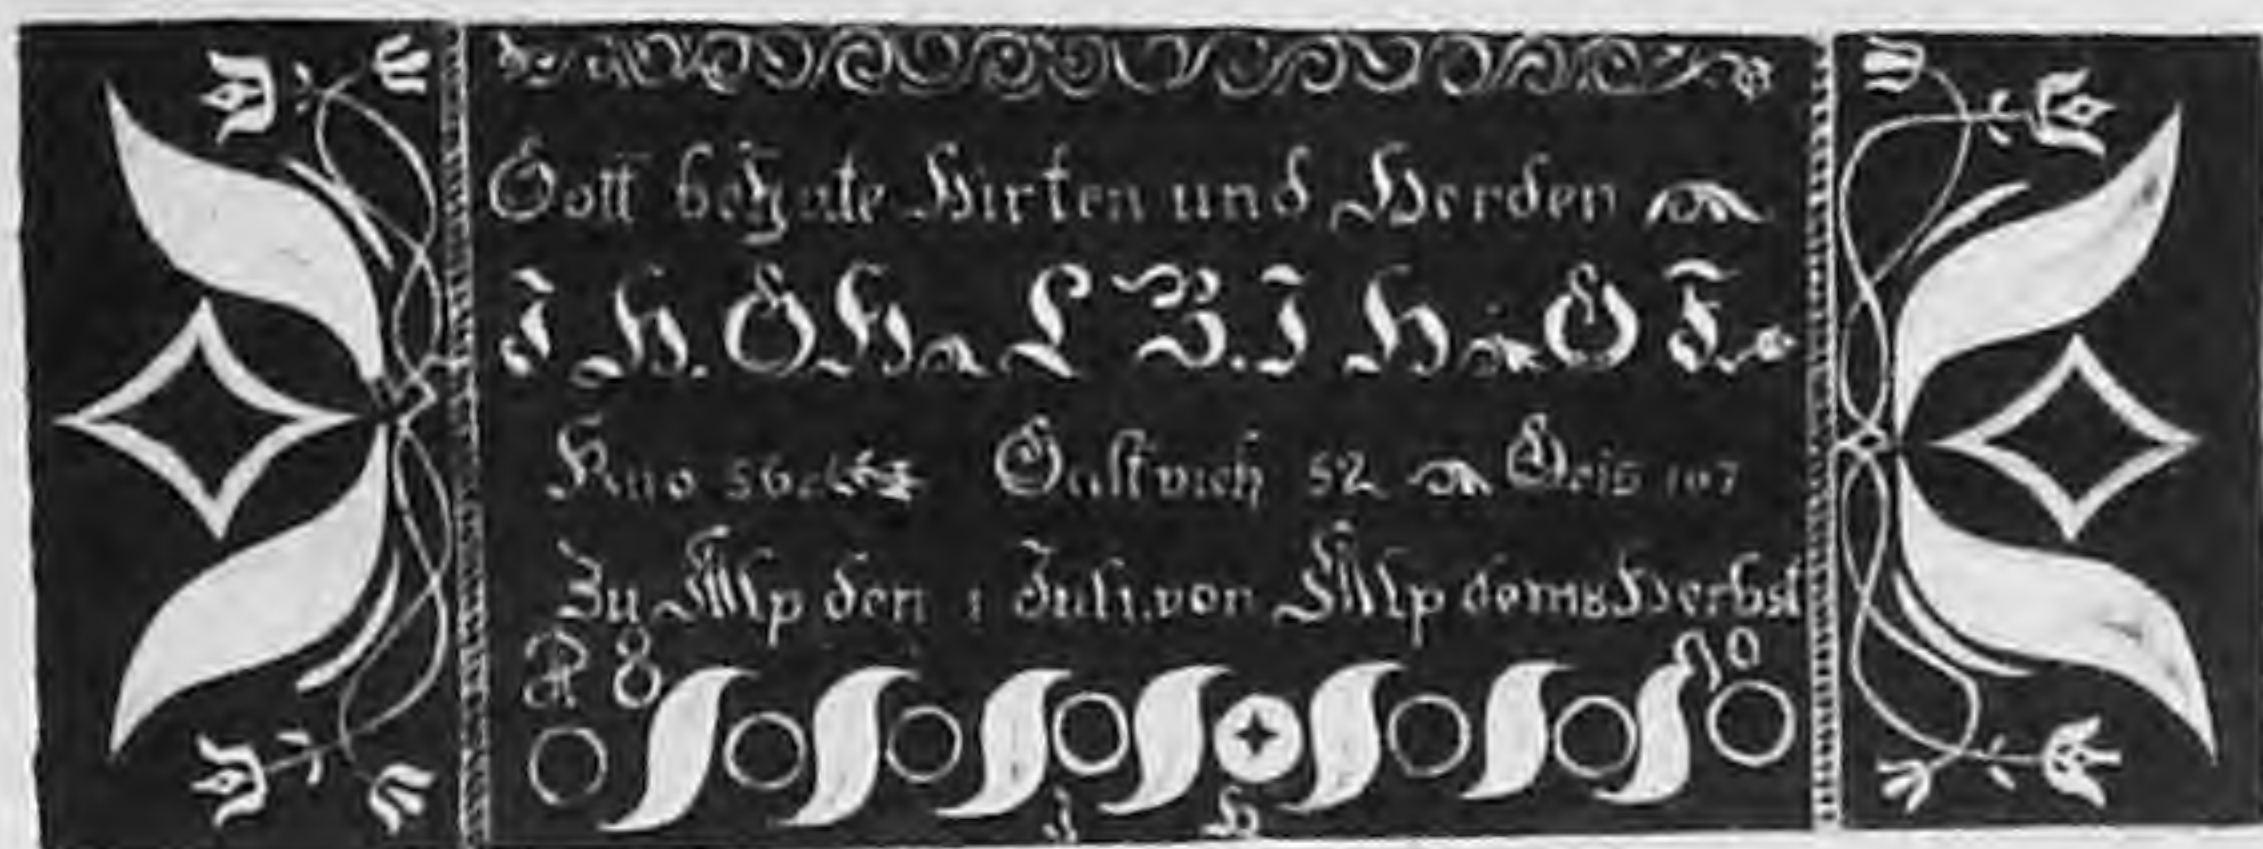 Gott behute Hirten und Herden
J H. G H L B. J H G F
Kuo 56 Galtvich 52 Geis 107
Zu Alp den 1 Juli. von Alp dem 8 Herbst
J H